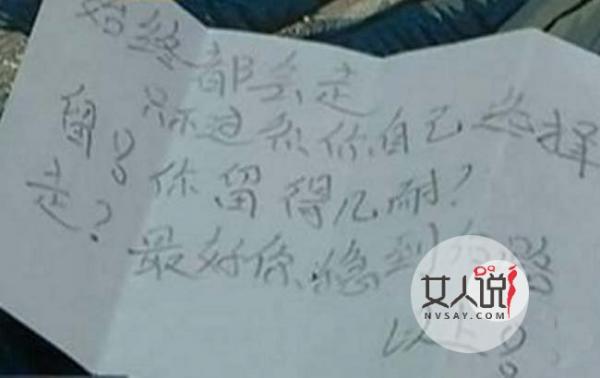 始终都会走
只不过你自己选择
留? 你留得几耐?
走? 最好你稳到路
以上?
女人说
NVSAY.COM